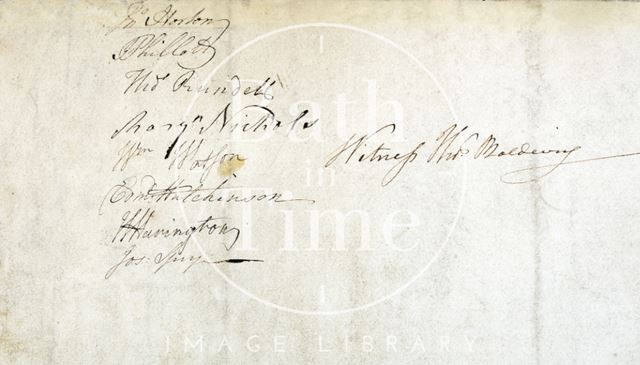 Jno. Horton
J Phillott
Thos. Rundell
Nichols
Wm Watson
Witness Thos. Baldwin
Edmd. Hutchinson
H Harington
Jos: Spry
Bath
in
Time
IMAGE LIBRARY